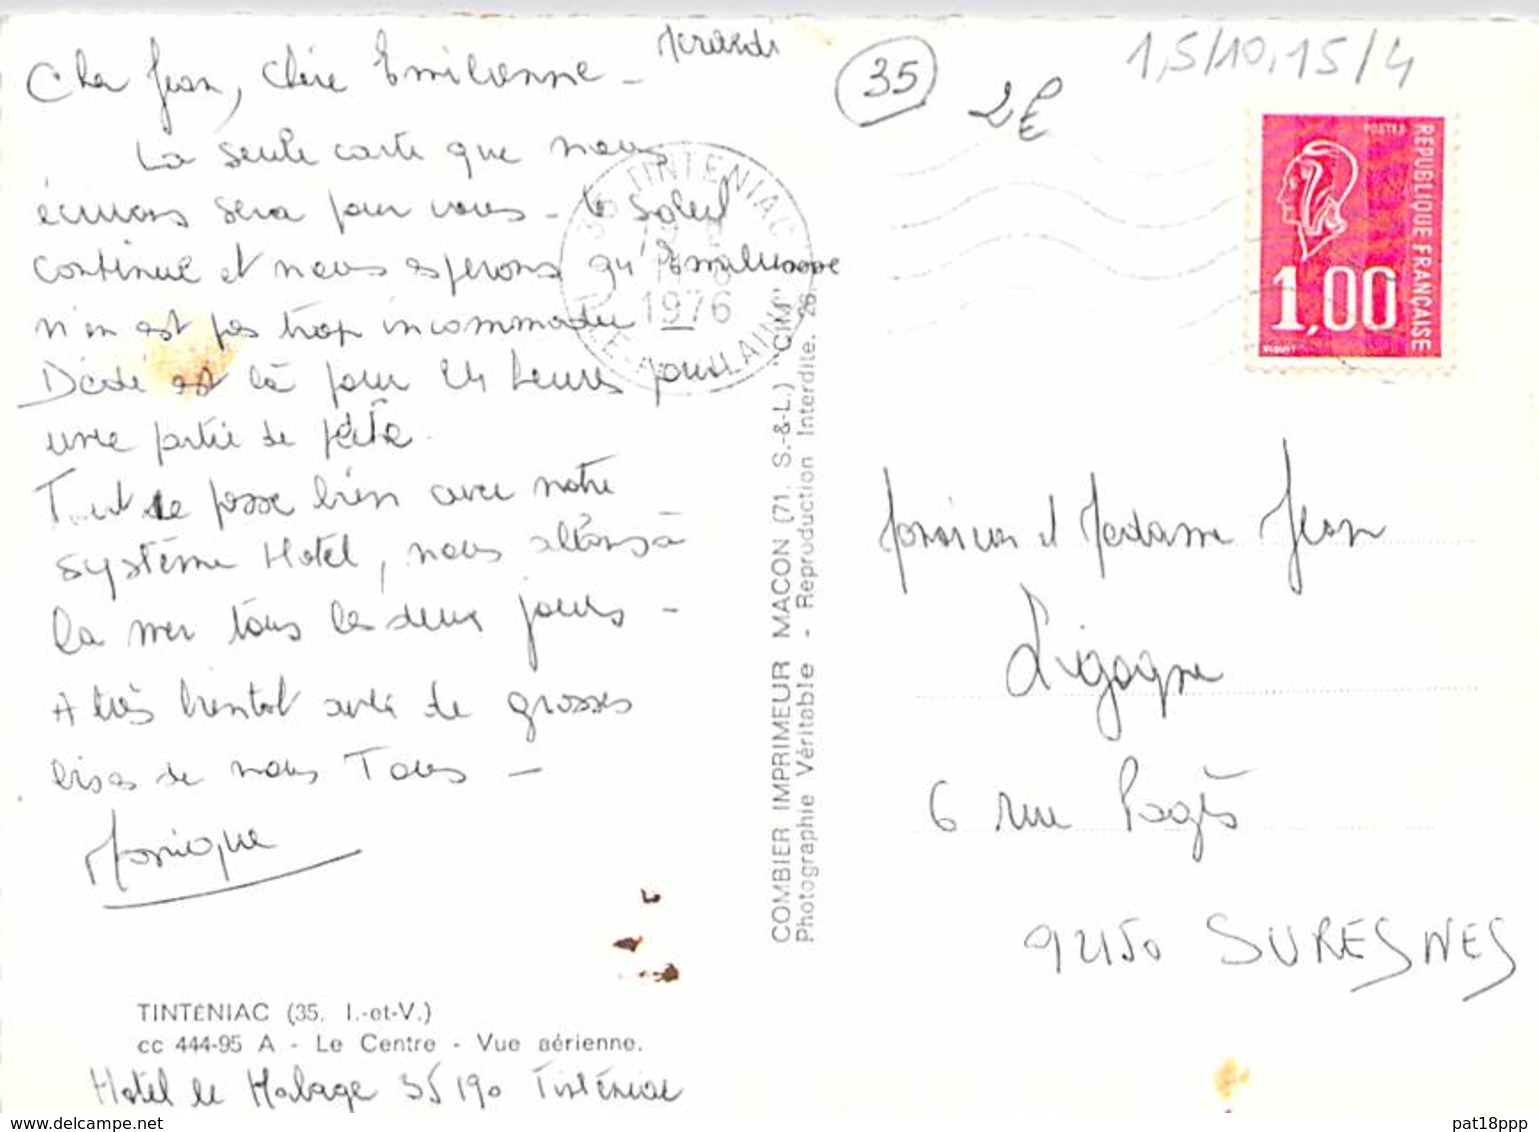 Mardi
Cher Jean, Chère Emilienne -
La seule carte que nous
écrivons sera pour vous - le soleil
continue et nous espérons qu'Emilienne
n'en est pas trop incommodée -
Dédé est là pour 24 heures pour
une partie de pêche.
Tout se passe bien avec notre
système Hotel, nous allons à
la mer tous les deux jours -
A très bientot avec de grosses
bises de nous Tous -
Monique
TINTENIAC (35. I.-et-V.)
cc 444-95 A - Le Centre - Vue aérienne.
Hotel le Malage 35190 Tinténiac
COMBIER IMPRIMEUR MACON (71. S.-&-L.) "CIM"
Photographie Véritable - Reproduction Interdite. 26.
35 TINTENIAC
1976
ILLE-ET-VILAINE
35
2€
1,5/10,15/4
POSTES
REPUBLIQUE FRANÇAISE
1,00
Monsieur et Madame Jean
Ligogne
6 rue Pagès
92150 SURESNES
pat18ppp